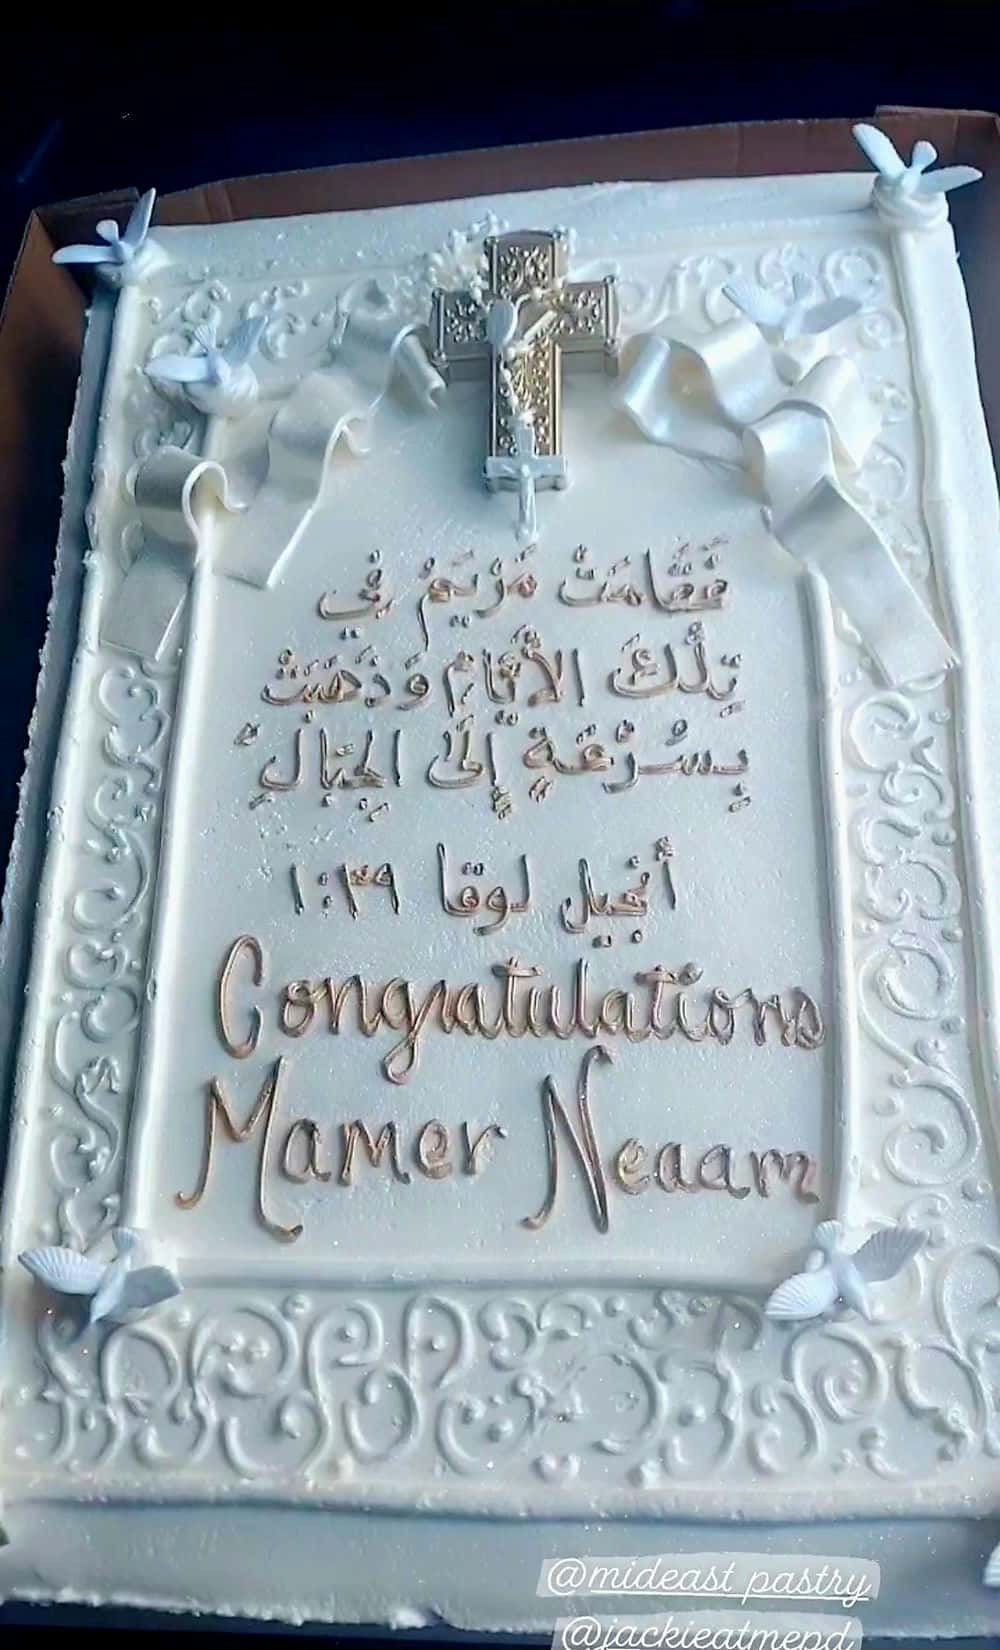 فَقَامَتْ مَرْيَمُ فِي
تِلْكَ الأَيَّامِ وَذَهَبَتْ
بِسُرْعَةٍ إِلَى الجِبَالِ
أنجيل لوقا ١:٣٩
Congratulations
Mamer Neaam
@mideast pastry
@jackieatmepd